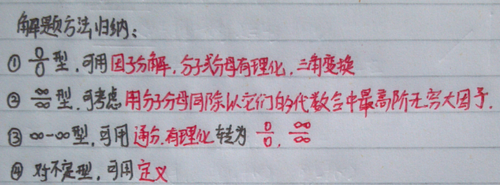 解题方法归纳:
① 0/0 型,可用因子分解,分子或分母有理化,三角变换
② ∞/∞ 型,可考虑用分子分母同除以它们的代数式中最高阶无穷大因子.
③ ∞-∞型,可用通分,有理化转为 0/0, ∞/∞
④ 对不定型,可用定义